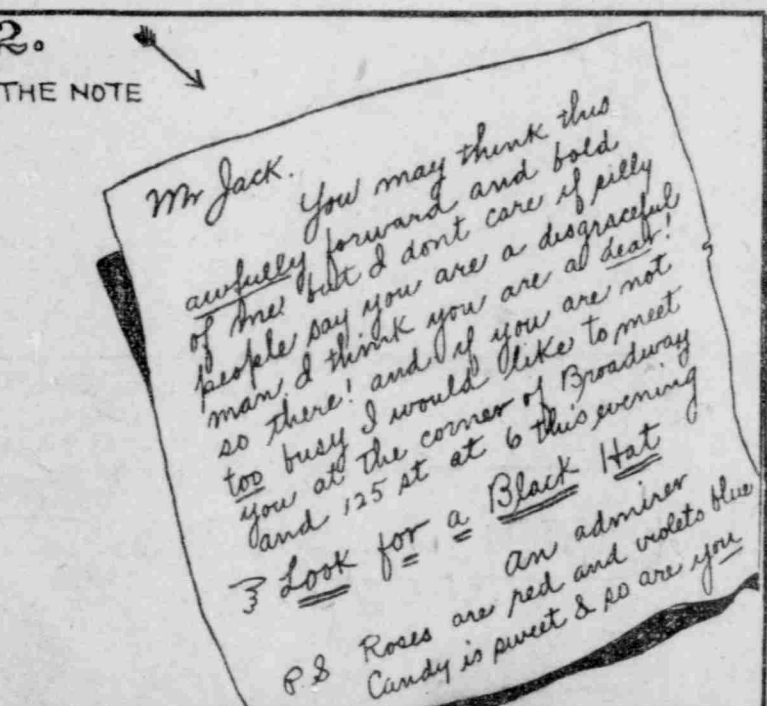 2.
THE NOTE
Mr Jack.
You may think this
awfully forward and bold
of me! but I dont care if silly
people say you are a disgraceful
man I think you are a dear!
so there! and if you are not
too busy I would like to meet
you at the corner of Broadway
and 125 st at 6 this evening
Look for a Black Hat
An admirer
P.S Roses are red and violets blue
Candy is sweet & so are you